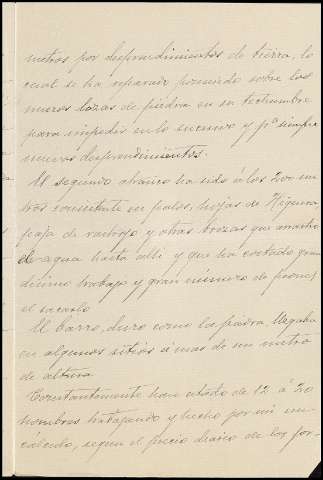 metros por desprendimientos de tierra, lo
cual se ha reparado poniendo sobre los
muros lozas de piedra en su techumbre
para impedir en lo sucesivo y pª siempre
nuevos desprendimientos.
El segundo atranco ha sido á los 200 me
tros consistente en palos, hojas de Higuera
paja de rastrojo y otras brozas que arrastro
el agua hasta alli y que ha costado gran
disimo trabajo y gran número de peones
el sacarlo
El barro, duro como la piedra, llegaba
en algunos sitios á mas de un metro
de altura
Constantemente han estado de 12 á 20
hombres trabajando y hecho por mi un
cálculo, segun el precio diario de los jor-